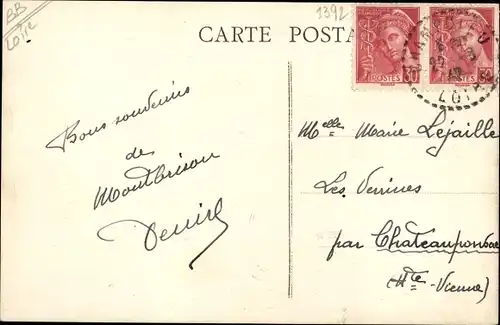 BB
Loire
1392
CARTE POSTA
30
POSTES
30
LOI
Bons souvenirs
de
Montbrison
Denise
Melle Marie Lejaille
Les Verrines
par Chateauponsac
(Hte-Vienne)